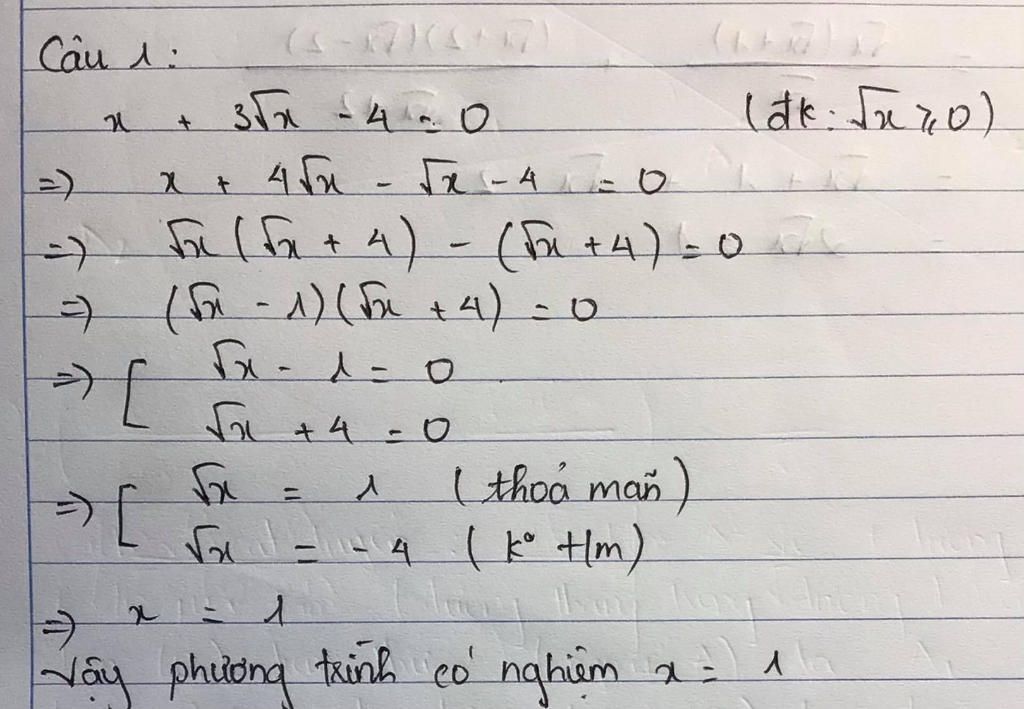 Câu 1:
x + 3√x - 4 = 0 (đk: √x ⩾ 0)
=> x + 4√x - √x - 4 = 0
=> √x (√x + 4) - (√x + 4) = 0
=> (√x - 1)(√x + 4) = 0
=> [ √x - 1 = 0
√x + 4 = 0
=> [ √x = 1 (thoả mãn)
√x = -4 (k° t/m)
=> x = 1
Vậy phương trình có nghiệm x = 1